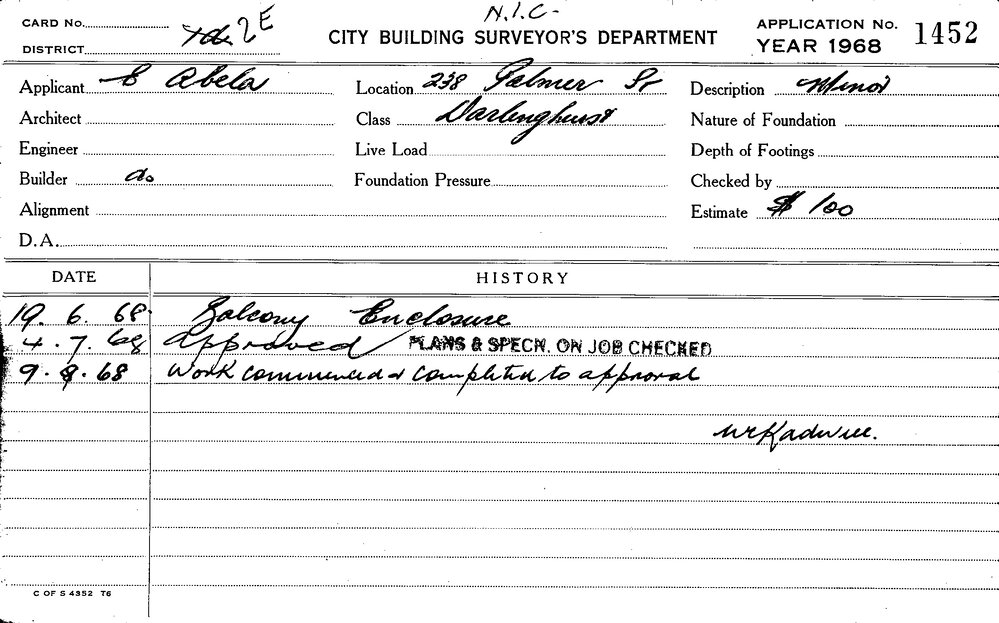 N.I.C-
CARD No.
2E
CITY BUILDING SURVEYOR'S DEPARTMENT
APPLICATION No. 1452
DISTRICT
YEAR 1968
Applicant E Abela Location 238 Palmer St Description Minor
Architect Class Darlinghurst Nature of Foundation
Engineer Live Load Depth of Footings
Builder do Foundation Pressure Checked by
Alignment Estimate $ 100
D.A.
DATE HISTORY
19. 6. 68. Balcony Enclosure
4. 7. 68 Approved PLANS & SPECN. ON JOB CHECKED
9. 8. 68 Work commenced & completed to approval
C OF S 4352 T6